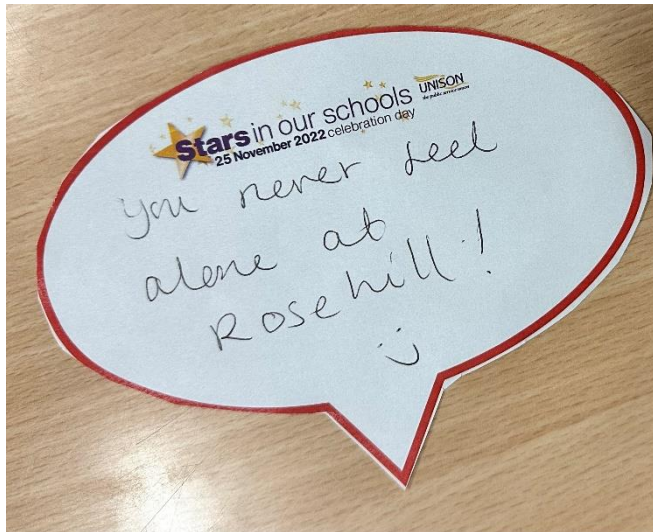 Stars in our schools
25 November 2022 celebration day
UNISON
the public service union
you never feel
alone at
Rosehill!
:)